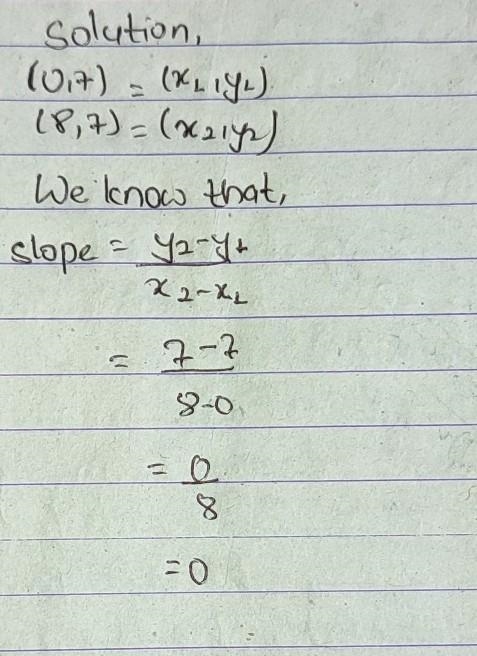 Solution,
(0,7) = (x1,y1)
(8,7) = (x2,y2)
We know that,
slope = y2-y1
x2-x1
= 7-7
8-0
= 0
8
=0